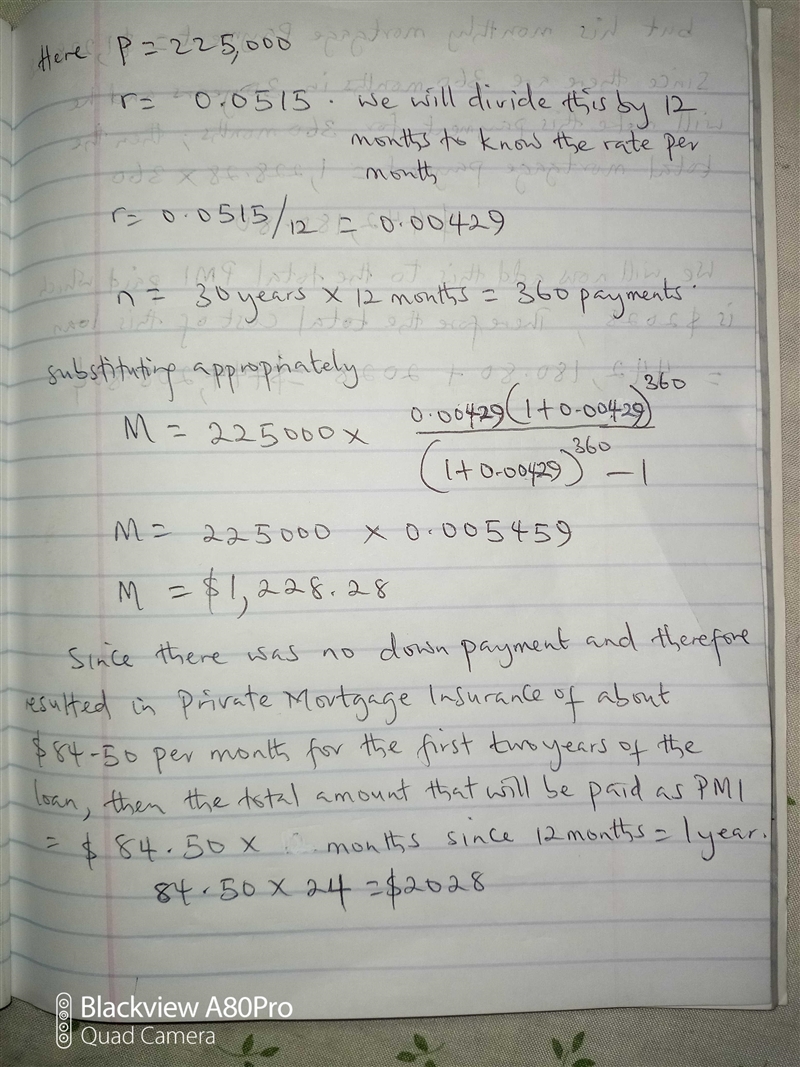 Here P = 225,000
r = 0.0515. We will divide this by 12
months to know the rate per
month
r = 0.0515/12 = 0.00429
n = 30 years × 12 months = 360 payments.
substituting appropriately
M = 225000 × 0.00429(1+0.00429)^360 / (1+0.00429)^360 − 1
M = 225000 × 0.005459
M = $1,228.28
Since there was no down payment and therefore
resulted in Private Mortgage Insurance of about
$84-50 per month for the first two years of the
loan, then the total amount that will be paid as PMI
= $84.50 × months since 12 months = 1 year.
84.50 × 24 = $2028
Blackview A80Pro
Quad Camera